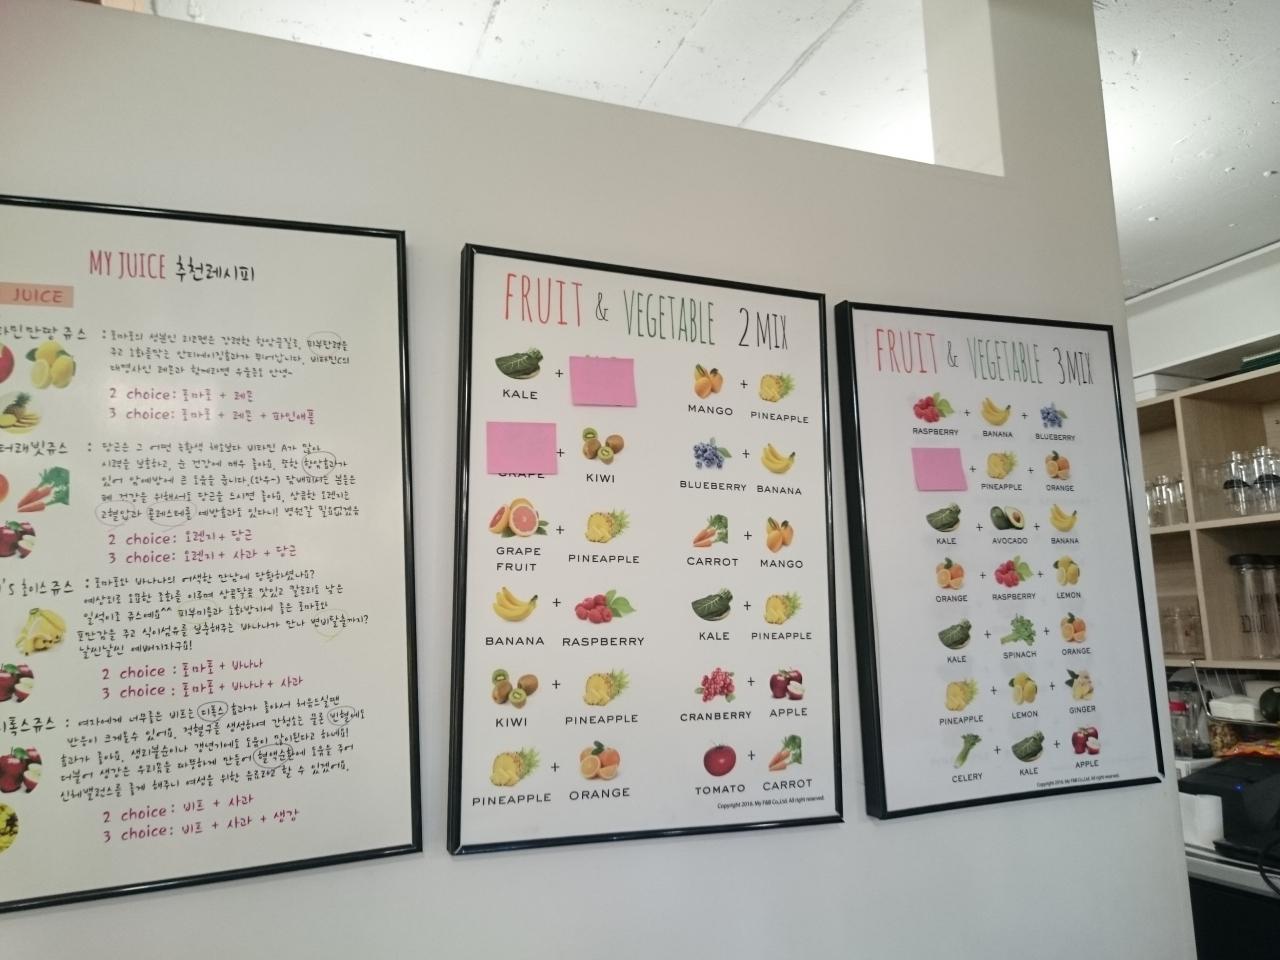 MY JUICE 추천레시피
JUICE
: 토마토의 성분인 리코펜은 강력한 항암물질로, 피부탄력을
주고 노화를막는 안티에이징효과가 뛰어납니다. 비타민C의
대명사인 레몬과 함께라면 우울증도 안녕~
2 choice: 토마토 + 레몬
3 choice: 토마토 + 레몬 + 파인애플
: 당근은 그 어떤 녹황색 채소보다 비타민 A가 많아
시력을 보호하고, 눈 건강에 매우 좋아요. 또한 항암효과가
있어 암예방에 큰 도움을 줍니다.
폐 건강을 위해서도 당근을 드시면 좋아요. 상큼한 오렌지는
고혈압과 콜레스테롤 예방효과도 있다니! 병원갈 필요없겠음
2 choice: 오렌지 + 당근
3 choice: 오렌지 + 사과 + 당근
's 초이스 쥬스 : 토마토와 바나나의 어색한 만남에 당황하셨나요?
예상외로 오묘한 조화를 이루며 상콤달콤 맛있고 칼로리도 낮은
일석이조 쥬스예요^^ 피부미용과 노화방지에 좋은 토마토와
포만감을 주고 식이섬유를 보충해주는 바나나가 만나 변비탈출까지?
날씬날씬 예뻐지자구요!
2 choice: 토마토 + 바나나
3 choice: 토마토 + 바나나 + 사과
톡스쥬스 : 여자에게 너무좋은 비트는 디톡스 효과가 좋아서 처음드실땐
반응이 크게올수 있어요. 적혈구를 생성하며 간청소는 물론 빈혈에도
효과가 좋아요. 생리불순이나 갱년기에도 도움이 많이된다고 하네요!
더불어 생강은 우리몸을 따뜻하게 만들어 혈액순환에 도움을 주어
신체밸런스를 좋게 해주니 여성을 위한 음료라고 할 수 있겠어요.
2 choice: 비트 + 사과
3 choice: 비트 + 사과 + 생강
FRUIT & VEGETABLE 2 MIX
KALE +
MANGO + PINEAPPLE
GRAPE + KIWI
BLUEBERRY + BANANA
GRAPE FRUIT + PINEAPPLE
CARROT + MANGO
BANANA + RASPBERRY
KALE + PINEAPPLE
KIWI + PINEAPPLE
CRANBERRY + APPLE
PINEAPPLE + ORANGE
TOMATO + CARROT
Copyright 2016. My F&B Co.,Ltd. All right reserved.
FRUIT & VEGETABLE 3 MIX
RASPBERRY + BANANA + BLUEBERRY
+ PINEAPPLE + ORANGE
KALE + AVOCADO + BANANA
ORANGE + RASPBERRY + LEMON
KALE + SPINACH + ORANGE
PINEAPPLE + LEMON + GINGER
CELERY + KALE + APPLE
Copyright 2016. My F&B Co.,Ltd. All right reserved.